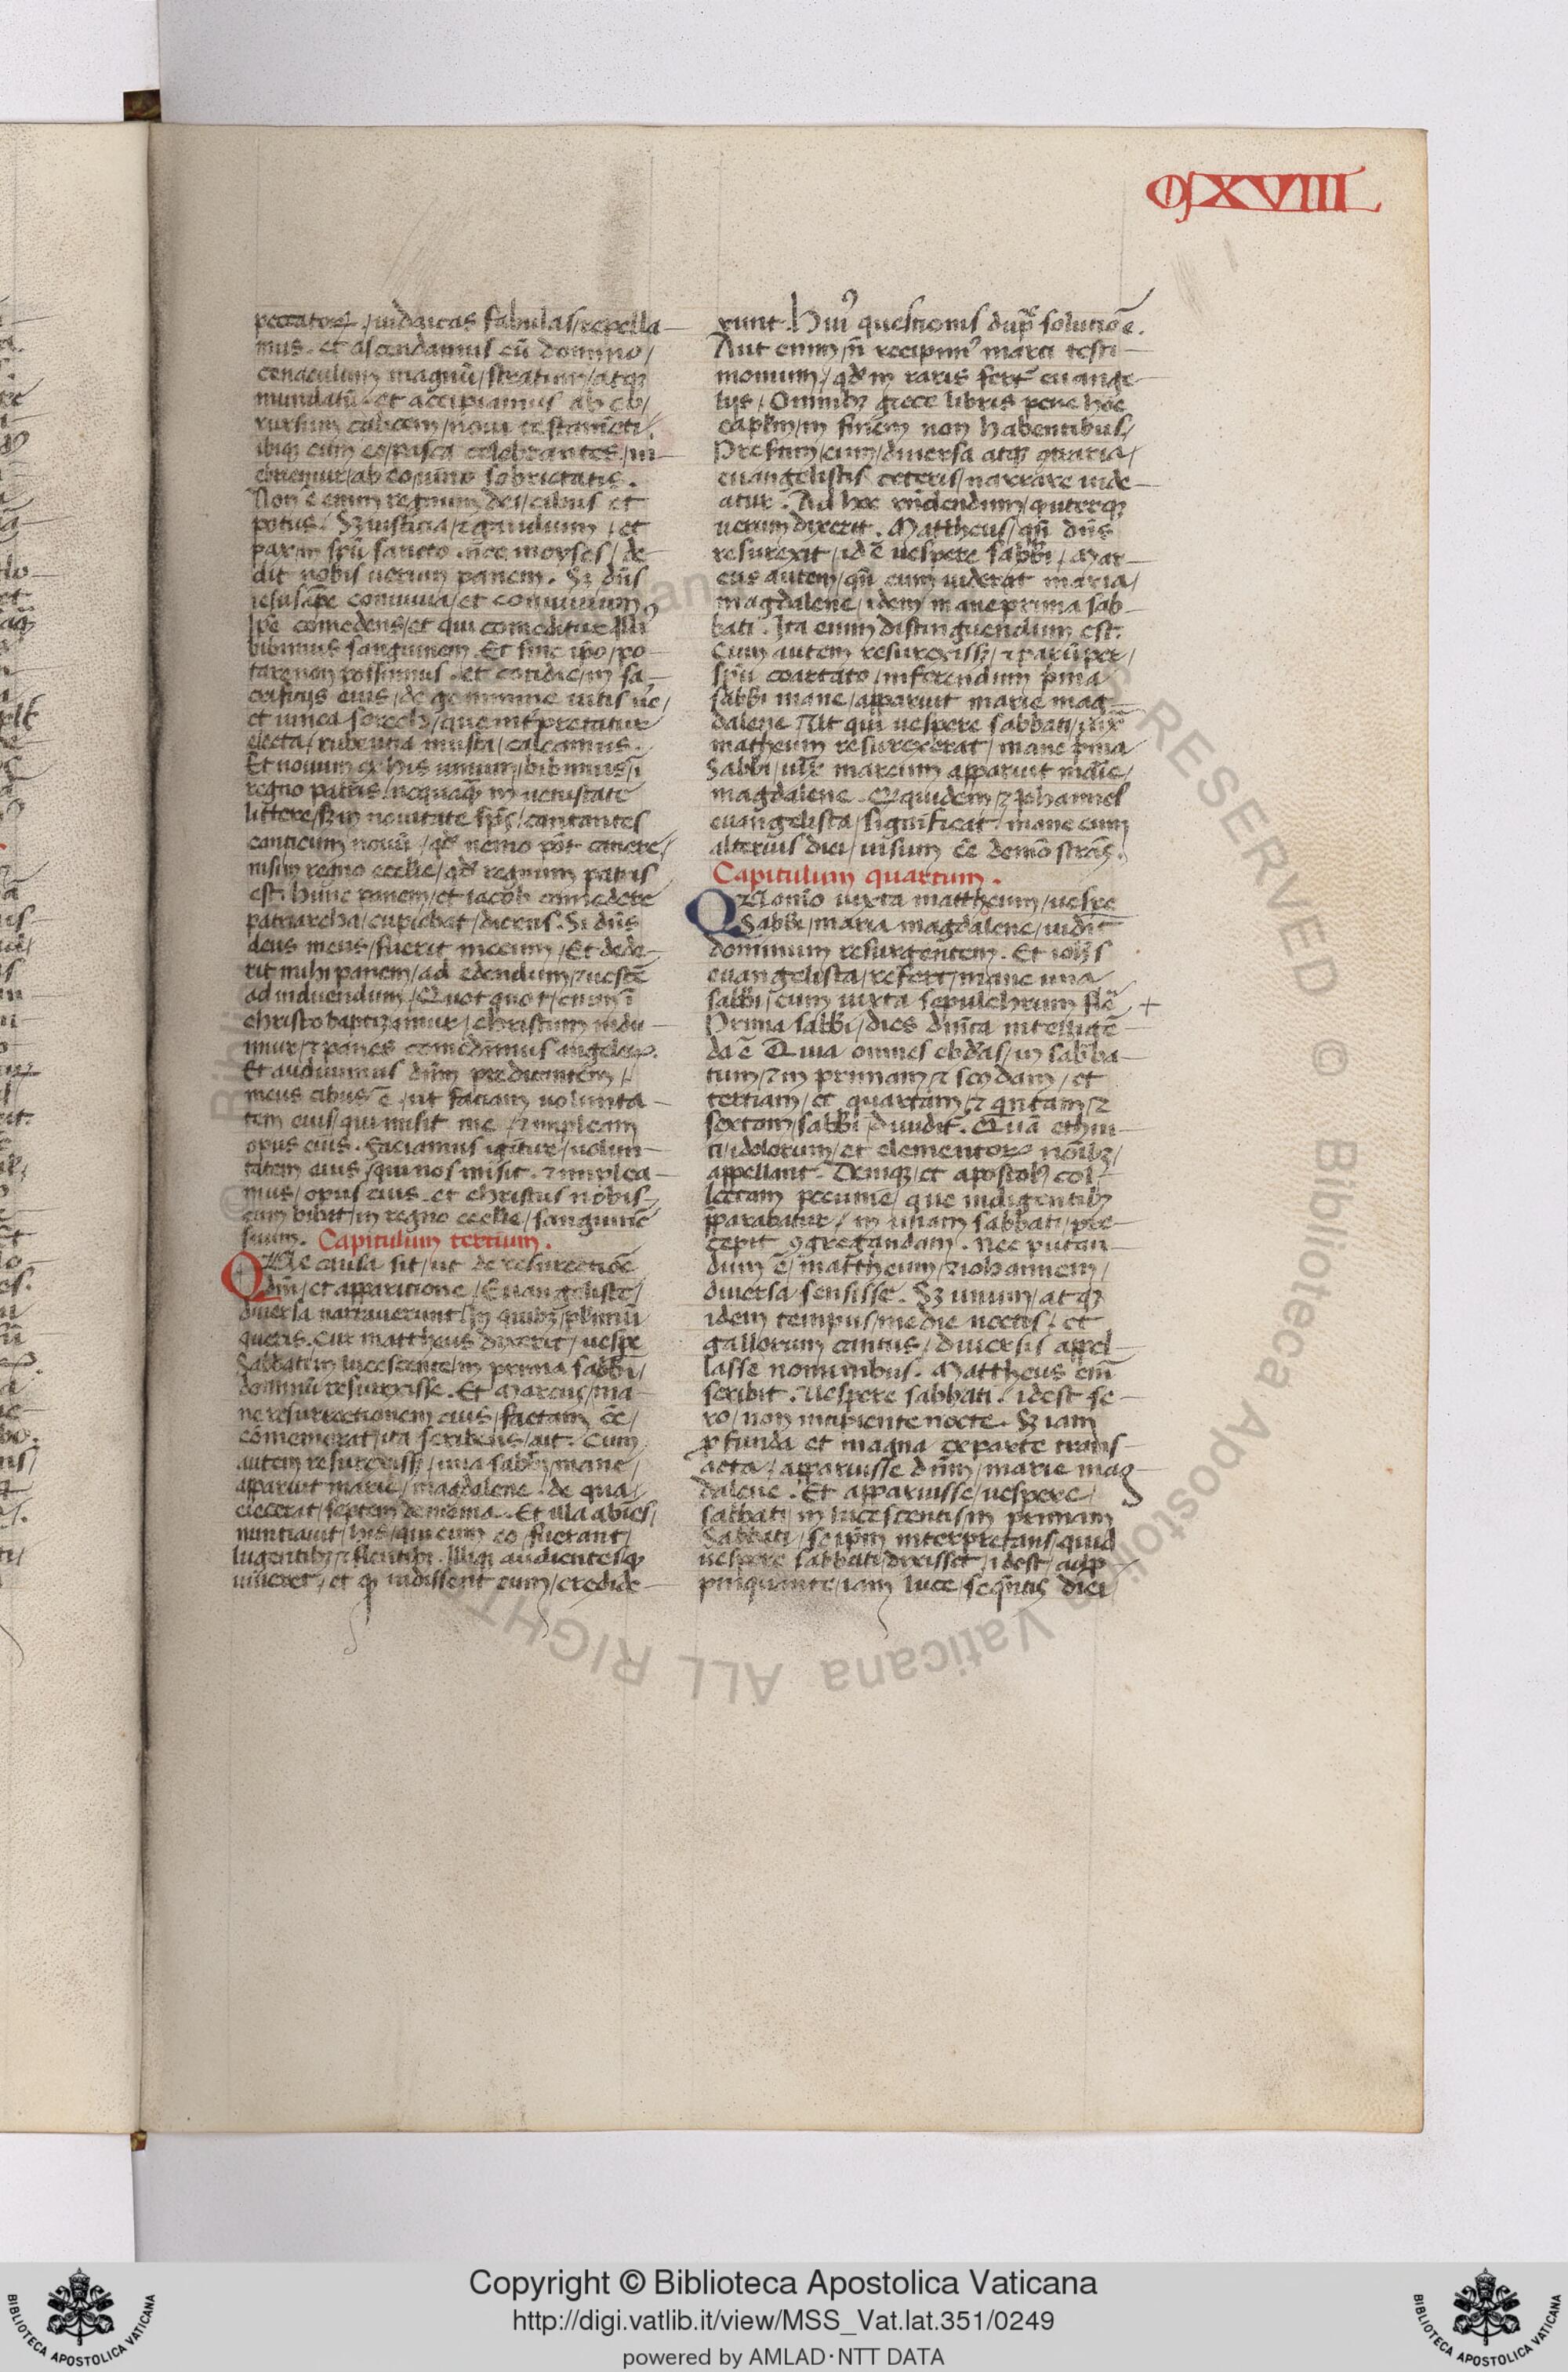 CXVIIII
peccatorꝝ / iudaicas fabulas / repella
mus. et ascendamus cū domino /
cenaculum magnū / stratum / atqꝫ
mundatū. et accipiamus ab eo /
rursum calicem / noui testamēti /
ibiqꝫ cum eo / pasca celebrantes / in
ebriemur / ab eo / uino sobrietatis.
Non ē enim regnum dei / cibus et
potus. Sꝫ iusticia / ⁊ gaudium / et
pax in spū sancto. nec moyses / de
dit nobis uerum panem. Sꝫ dn̄s
conuiua / et conuiuium
Ip̄e comedens / et qui comeditur. Illiꝰ
bibimus sanguinem. Et sine ip̄o / po
tare non possumus. et cotidie / in sa
crificijs eius / de genimine uitis ūe /
et uinea sorech / que interpretatur
electa / rubentia musta / calcamus.
Et nouum ex his uinum / bibimus / ī
regno patris / nequaqͣꝫ in uetustate
littere / sꝫ in nouitate sp̄s / cantantes
canticum nouū / qd̄ nemo pōt canere /
nisi in regno eccl̄ie / qd̄ regnum patris
est. hunc panem / et iacob comedere
patriarcha / cupiebat / dicens. Si dn̄s
deus meus / fuerit mecum / Et dede
rit mihi panem / ad edendum / ⁊ uestē
ad induendum / Quot quot / enim ī
christo baptizamur / christum indu
imur / ⁊ panes comedimus angeloꝝ.
Et audiuimus dn̄m predicantem /
meus cibus ē / ut faciam uolunta
tem eius / qui misit me / ⁊ impleam
opus eius. Faciamus igitur / uolun
tatem eius / qui nos misit. ⁊ implea
mus / opus eius. et christus nobis
cum bibit / in regno eccl̄ie / sanguinē
suum. Capitulum tertium.
QVe causa sit / ut de resurectiōe
dn̄i / et apparitione / Euangeliste /
diuersa narrauerunt / In quibꝫ / p̄limū
queris. Cur mattheus dixerit / uesp̄e
Sabbati in lucescente / in prima sabb̄i /
dominū resurrexisse. Et Marcus / ma
ne resurrectionem eius / factam eē /
cōmemorat / ita scribens / ait. Cum
autem resurrexissꝫ / una sabb̄i / mane /
apparuit marie / magdalene. de qua /
eiecerat / septem demōnia. Et illa abiēs /
nuntiauit / his / qui cum eo / fuerant /
lugentibꝫ / ⁊ flentibꝫ. Illiqꝫ audientes qꝫ
uiueret / et qꝫ uidissent eum / credide
runt. Huiꝰ questionis dup̄ solutio ē.
Aut enim / n̄ recipimꝰ marci testi
monium / qd̄ in raris fert̄ euange
lijs / Omnibꝫ grece libris pene hoc
cap̄lm / in finem non habentibus /
Presertim / cum / diuersa atqꝫ ↄtraria /
euangelistis ceteris / narrare uide
atur. Ad hoc rn̄dendum / ꝙ uterqꝫ
uerum dixerit. Mattheus / qn̄ dn̄s
resurexit / id ē uespere sabb̄i / Mar
cus autem / qn̄ eum uiderat maria /
magdalene / idem mane prima sab
bati. Ita enim distinguendum est.
Cum autem resurrexissꝫ / ⁊ parūper /
spū coartato / inferendum p̄ma
sabb̄i mane / apparuit marie mag
dalene. Ut qui uespere sabbati / iux̄
matheum resurrexerat / mane p̄ma
Sabb̄i / marcum apparuit marie /
magdalene. Qꝫ quidem / ⁊ Johannes
euangelista / significat / mane eum
alterius diei / uisum eē demōstrās.
Capitulum quartum.
QVomō iuxta mattheum / uespe
Sabb̄i / maria magdalene / uidit
dominum resurgentem. Et ioh̄s
euangelista / refert / mane una
sabb̄i / eum iuxta sepulchrum flē +
Prima sabb̄i / dies dn̄ica intelligē
da ē Quia omnes ebdās / in sabba
tum / ⁊ in primam / ⁊ scd̄am / et
tertiam / et quartam / ⁊ qn̄tam / ⁊
sextam / sabb̄i / diuidit̄. Quā ethni
ci / idolorum / et elementorꝝ nōibꝫ /
appellant. Deniqꝫ / et apostolꝰ col
lectam pecunie / que indigentibꝫ
p̄parabatur / in unam sabbati / pre
cepit ↄgregandam. Nec putan
dum ē / mattheum / ⁊ iohannem /
diuersa sensisse. Sꝫ unum / atqꝫ
idem tempus / medie noctis / et
gallorum cantus / diuersis appel
lasse nominibus. Mattheus em̄
scribit. Uespere sabbati / idest se
ro / non incipiente nocte. Sꝫ iam
ꝓfunda et magna ex parte trans
acta / apparuisse dn̄m / marie mag
dalene. Et apparuisse / uespere /
sabbati / in lucescentis in primam
Sabbati / se ip̄m interpretans / quid
uespere sabbati / dixisset / idest adꝓ
pinquante / iam luce / seqn̄tis diei
Copyright © Biblioteca Apostolica Vaticana
http://digi.vatlib.it/view/MSS_Vat.lat.351/0249
powered by AMLAD·NTT DATA